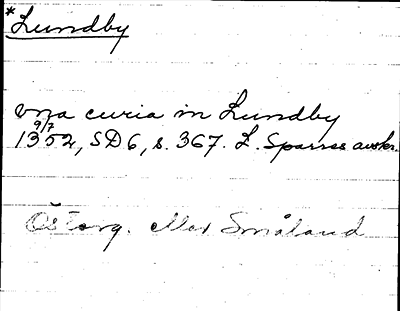 *Lundby
vna curia in Lundby
9/7
1352, SD6, s. 367. L. Sparres avskr.
Österg. eller Småland